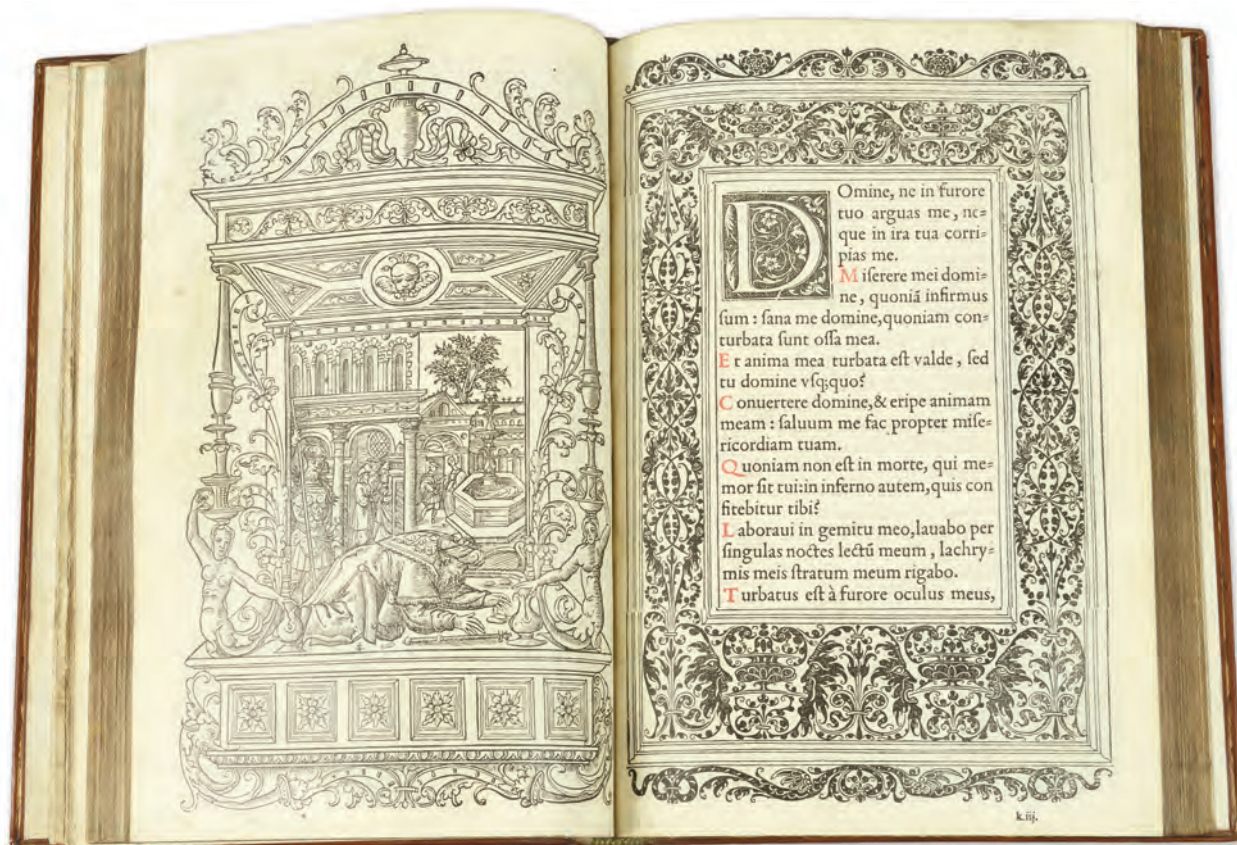 DOmine, ne in furore
tuo arguas me, ne=
que in ira tua corri=
pias me.
Miſerere mei domi=
ne, quoniã infirmus
ſum : ſana me domine, quoniam con=
turbata ſunt oſſa mea.
Et anima mea turbata eſt valde, ſed
tu domine vſq;quo?
Conuertere domine, & eripe animam
meam : ſaluum me fac propter miſe=
ricordiam tuam.
Quoniam non eſt in morte, qui me=
mor ſit tui: in inferno autem, quis con
fitebitur tibi?
Laboraui in gemitu meo, lauabo per
ſingulas noctes lectũ meum, lachry=
mis meis ſtratum meum rigabo.
Turbatus eſt à furore oculus meus,
k.iij.